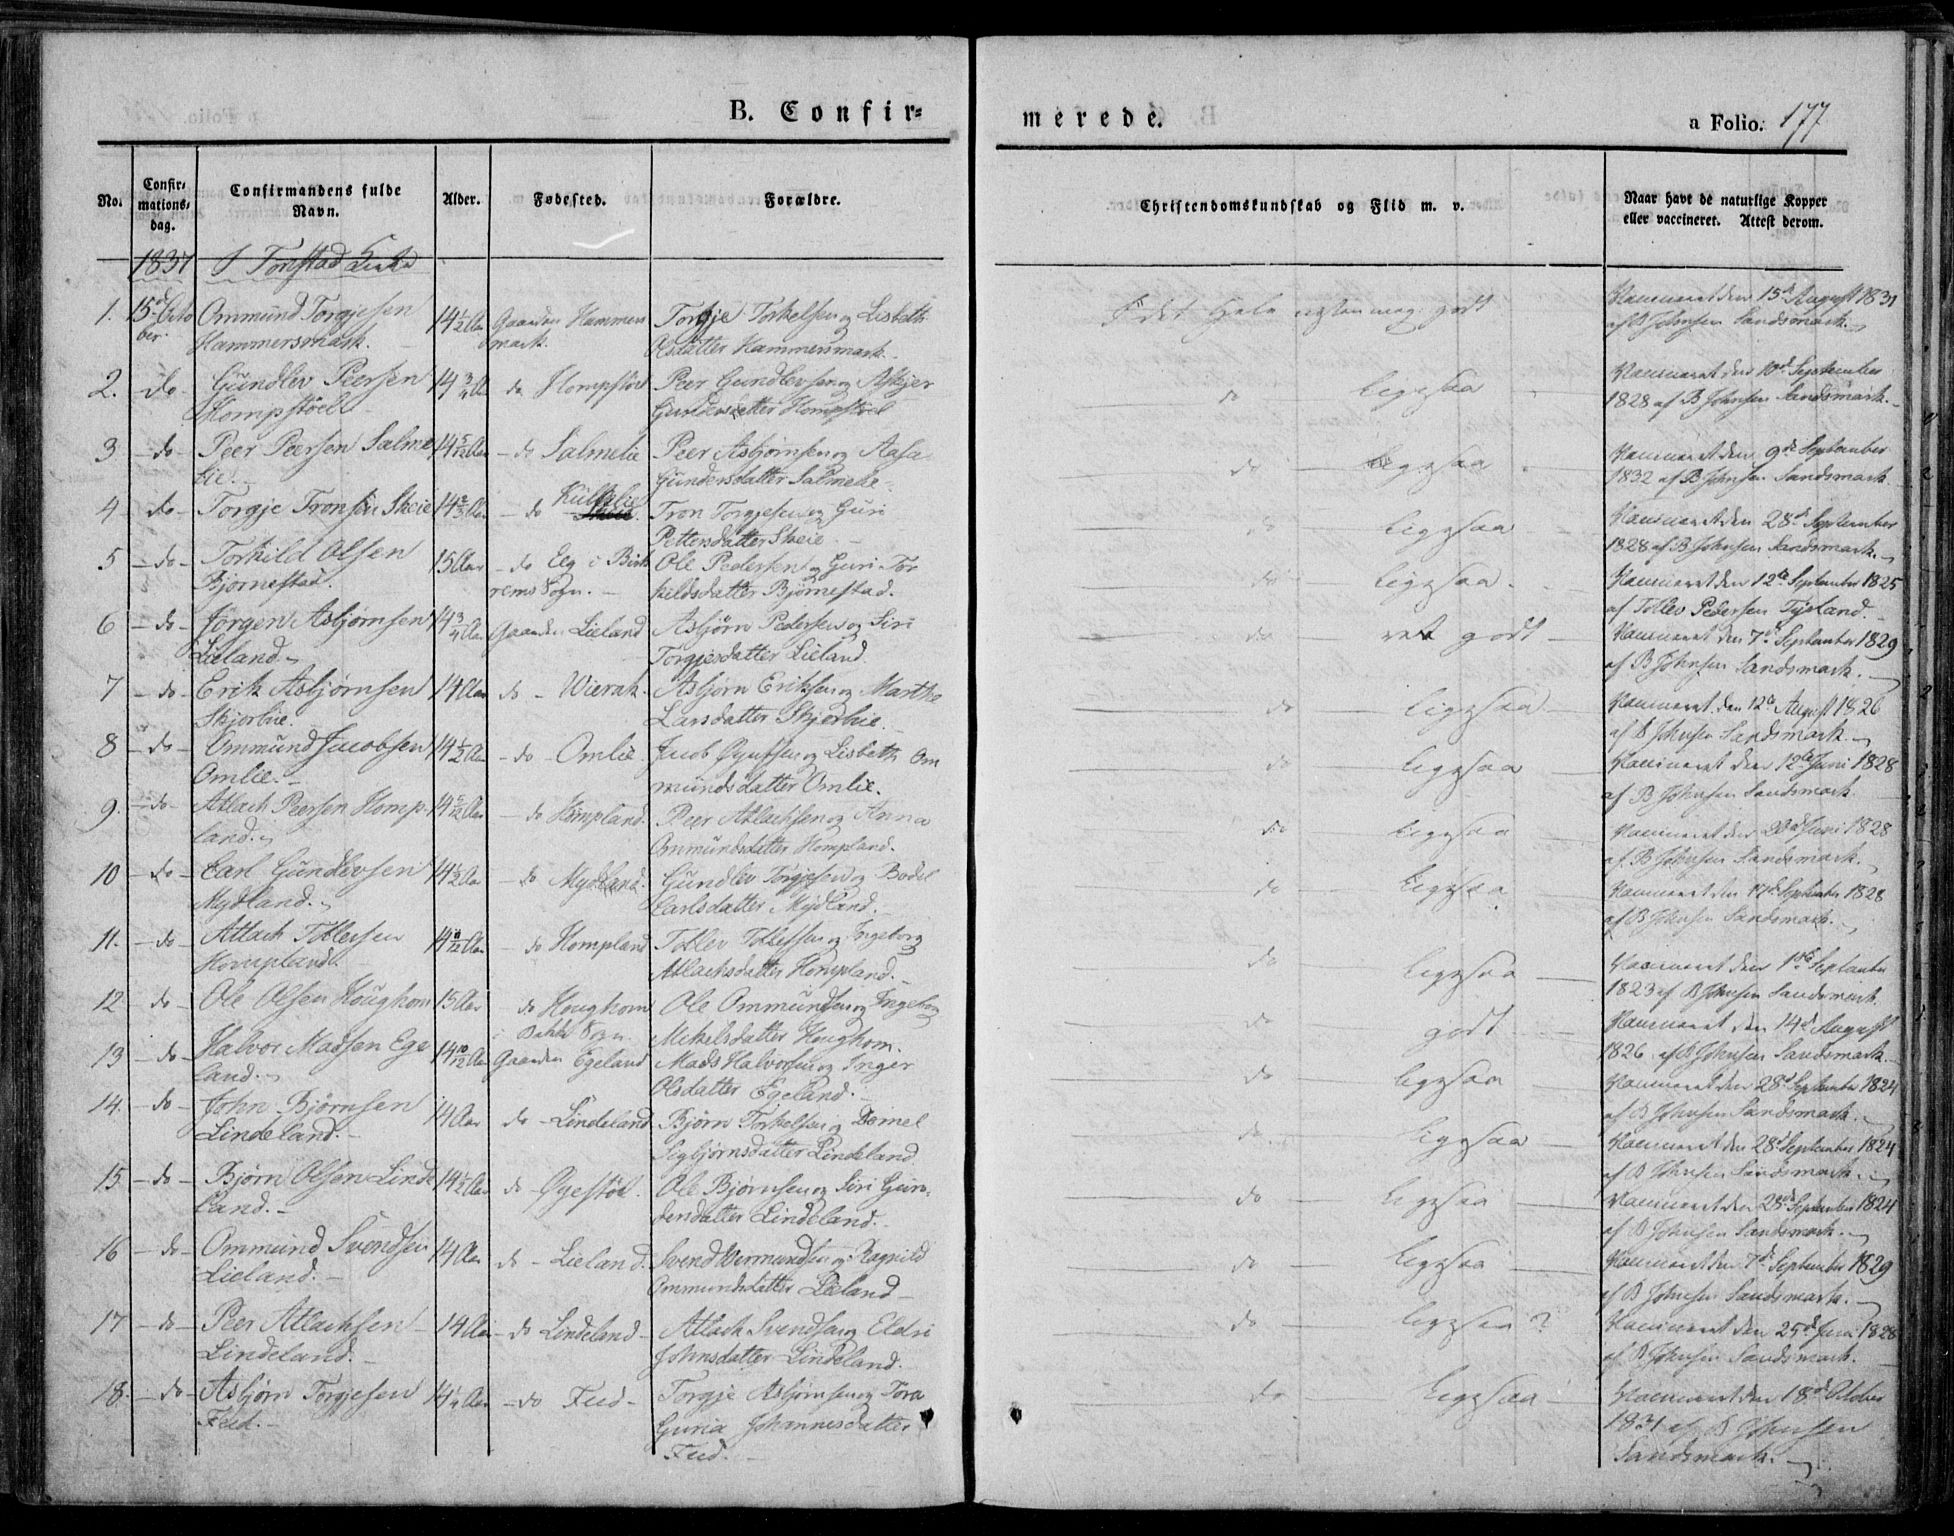 B. Confir-
merede.
a Folio. 177
No.
Confir-
mations-
dag.
Confirmandens fulde
Navn.
Alder.
Fødested.
Forældre.
Christendomskundskab og Flid m. v.
Naar havt de naturlige Kopper
eller vaccineret. Attest derom.
1837 I Tonstad Kirke
1. 15d Octo Ommund Torgjesen 14 1/2 Aar Gaarden Hammers Torgje Torkelsen og Lisbeth
ber Hammersmark. mark. Olsdatter Hammersmark.
I det Hele næsten meg. godt
Vaccineret den 15de August 1831
af B Johnsen Sandsmark.
2. do Gundlev Peersen 14 3/4 A do Hompstöel Peer Gundlevsen og Asbjer
Hompstöel Gundersdatter Hompstöel
do ligesaa
Vaccineret den 10d September
1828 af B Johnsen Sandsmark.
3 do Peer Peersen Salme 14 5/12 Aar do Salmelie Peer Asbjørnsen og Aasa
lie. Gundersdatter Salmelie
do ligesaa
Vaccineret den 9de September
1832 af B Johnsen Sandsmark
4 do Torgje Tronsen Skeie 14 2/3 Aar do Tron Torgjesen og Guri
Pettersdatter Skeie
do ligesaa
Vaccineret den 28d September
1828 af B Johnsen Sandsmark.
5 do Torkild Olsen 15 Aar do Eeg i Birk Ole Pedersen og Guri Tor
Bjørnestad. rems Sogn. kildsdatter Bjørnestad.
do ligesaa
Vaccineret den 12te September 1825
af Tollev Pedersen Tjeland
6 do Jørgen Asbjørnsen 14 3/4 Aar Gaarden Lieland Asbjørn Pedersen og Siri
Lieland. Torgjesdatter Lieland
do ret godt
Vaccineret den 7d September 1829
af B Johnsen Sandsmark.
7 do Erik Asbjørnsen 14 Aar do Wierak Asbjørn Eriksen og Marthe
Skjerlie. Larsdatter Skjerlie
do ligesaa
Vaccineret den 12te August 1826
af B Johnsen Sandsmark.
8 do Ommund Jacobsen 14 1/2 Aar do Omlie Jacob Øyufsen og Lisbeth Om
Omlie. mundsdatter Omlie.
do ligesaa
Vaccineret den 12te Juni 1828
af B Johnsen Sandsmark.
9. do Atlach Peersen Homp- 14 5/12 Aar do Hompland Peer Atlachsen og Anna
land. Ommundsdatter Hompland.
do ligesaa
Vaccineret den Juni 1828
af B Johnsen Sandsmark.
10 do Carl Gundlevsen 14 1/2 Aar do Mydland Gundlev Torgjesen og Bodel
Mydland. Carlsdatter Mydland.
do ligesaa
Vaccineret den 17d September 1828
af B Johnsen Sandsmark.
11. do Atlach Tollevsen 14 11/12 Aar do Hompland Tollev Tollefsen og Ingeborg
Hompland. Atlachsdatter Hompland.
do ligesaa
Vaccineret den 1ste September
1823 af B Johnsen Sandsmark.
12 do Ole Olsen Houghom 15 Aar do Houghom Ole Ommundsen og Ingeborg
i Bakke Sogn. Mikelsdatter Houghom.
do godt
Vaccineret den 14d August
1826 af B Johnsen Sandsmark.
13 do Halvor Madsen Ege 14 10/12 Aar Gaarden Egeland Mads Halvorsen og Inger
land. Olsdatter Egeland.
do ligesaa
Vaccineret den 28d September 1824
af B Johnsen Sandsmark.
14. do John Bjørnsen 14 Aar do Lindeland Bjørn Torkelsen og
Lindeland. Sigbjørnsdatter Lindeland
do ligesaa
Vaccineret den 28d September 1824
af B Johnsen Sandsmark.
15 do Bjørn Olsen Linde 14 1/2 Aar do Øgestöl. Ole Bjørnsen og Siri Gun-
land. dersdatter Lindeland.
do ligesaa
Vaccineret den 28de September 1824
af B Johnsen Sandsmark.
16 do Ommund Svendsen 14 Aar do Lieland. Svend Wermundsen og Ragnild
Lieland. Ommundsdatter Lieland
do ligesaa
Vaccineret den 7d September 1829
af B Johnsen Sandsmark.
17 do Peer Atlachsen 14 Aar do Lindeland Atlach Svendsen og Eldri
Lindeland. Johnsdatter Lindeland.
do ligesaa ?
Vaccineret den 25d Juni 1828
af B Johnsen Sandsmark.
18. do Asbjørn Torgjesen 14 1/4 Aar do Feed Torgje Asbjørnsen og Tora
Feed. Guria Johannesdatter
Feed.
do ligesaa
Vaccineret den 18d October
1831 af B Johnsen
Sandsmark.